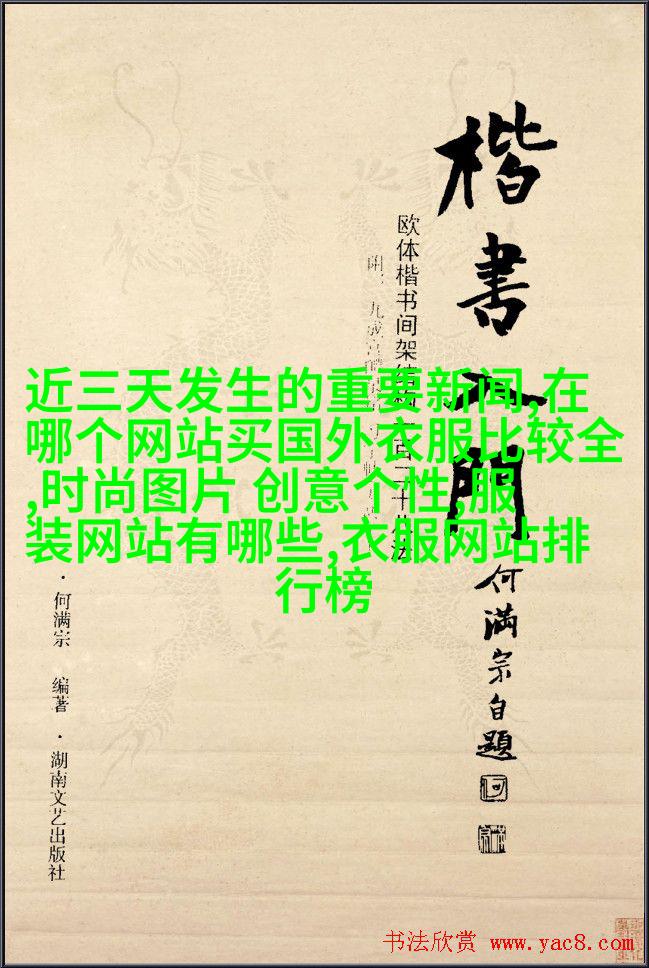 楷書入門
欧体楷书间架结构一百二十八法
何满宗自題
近三天发生的重要新闻,在
哪个网站买国外衣服比较全
,时尚图片 创意个性,服
装网站有哪些,衣服网站排
行榜
·何满宗 编著·湖南文艺出版社
书法欣赏 www.yac8.com